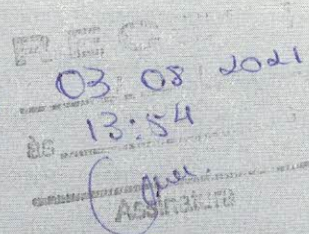 03 08 2021
às 13:54
Assinatura